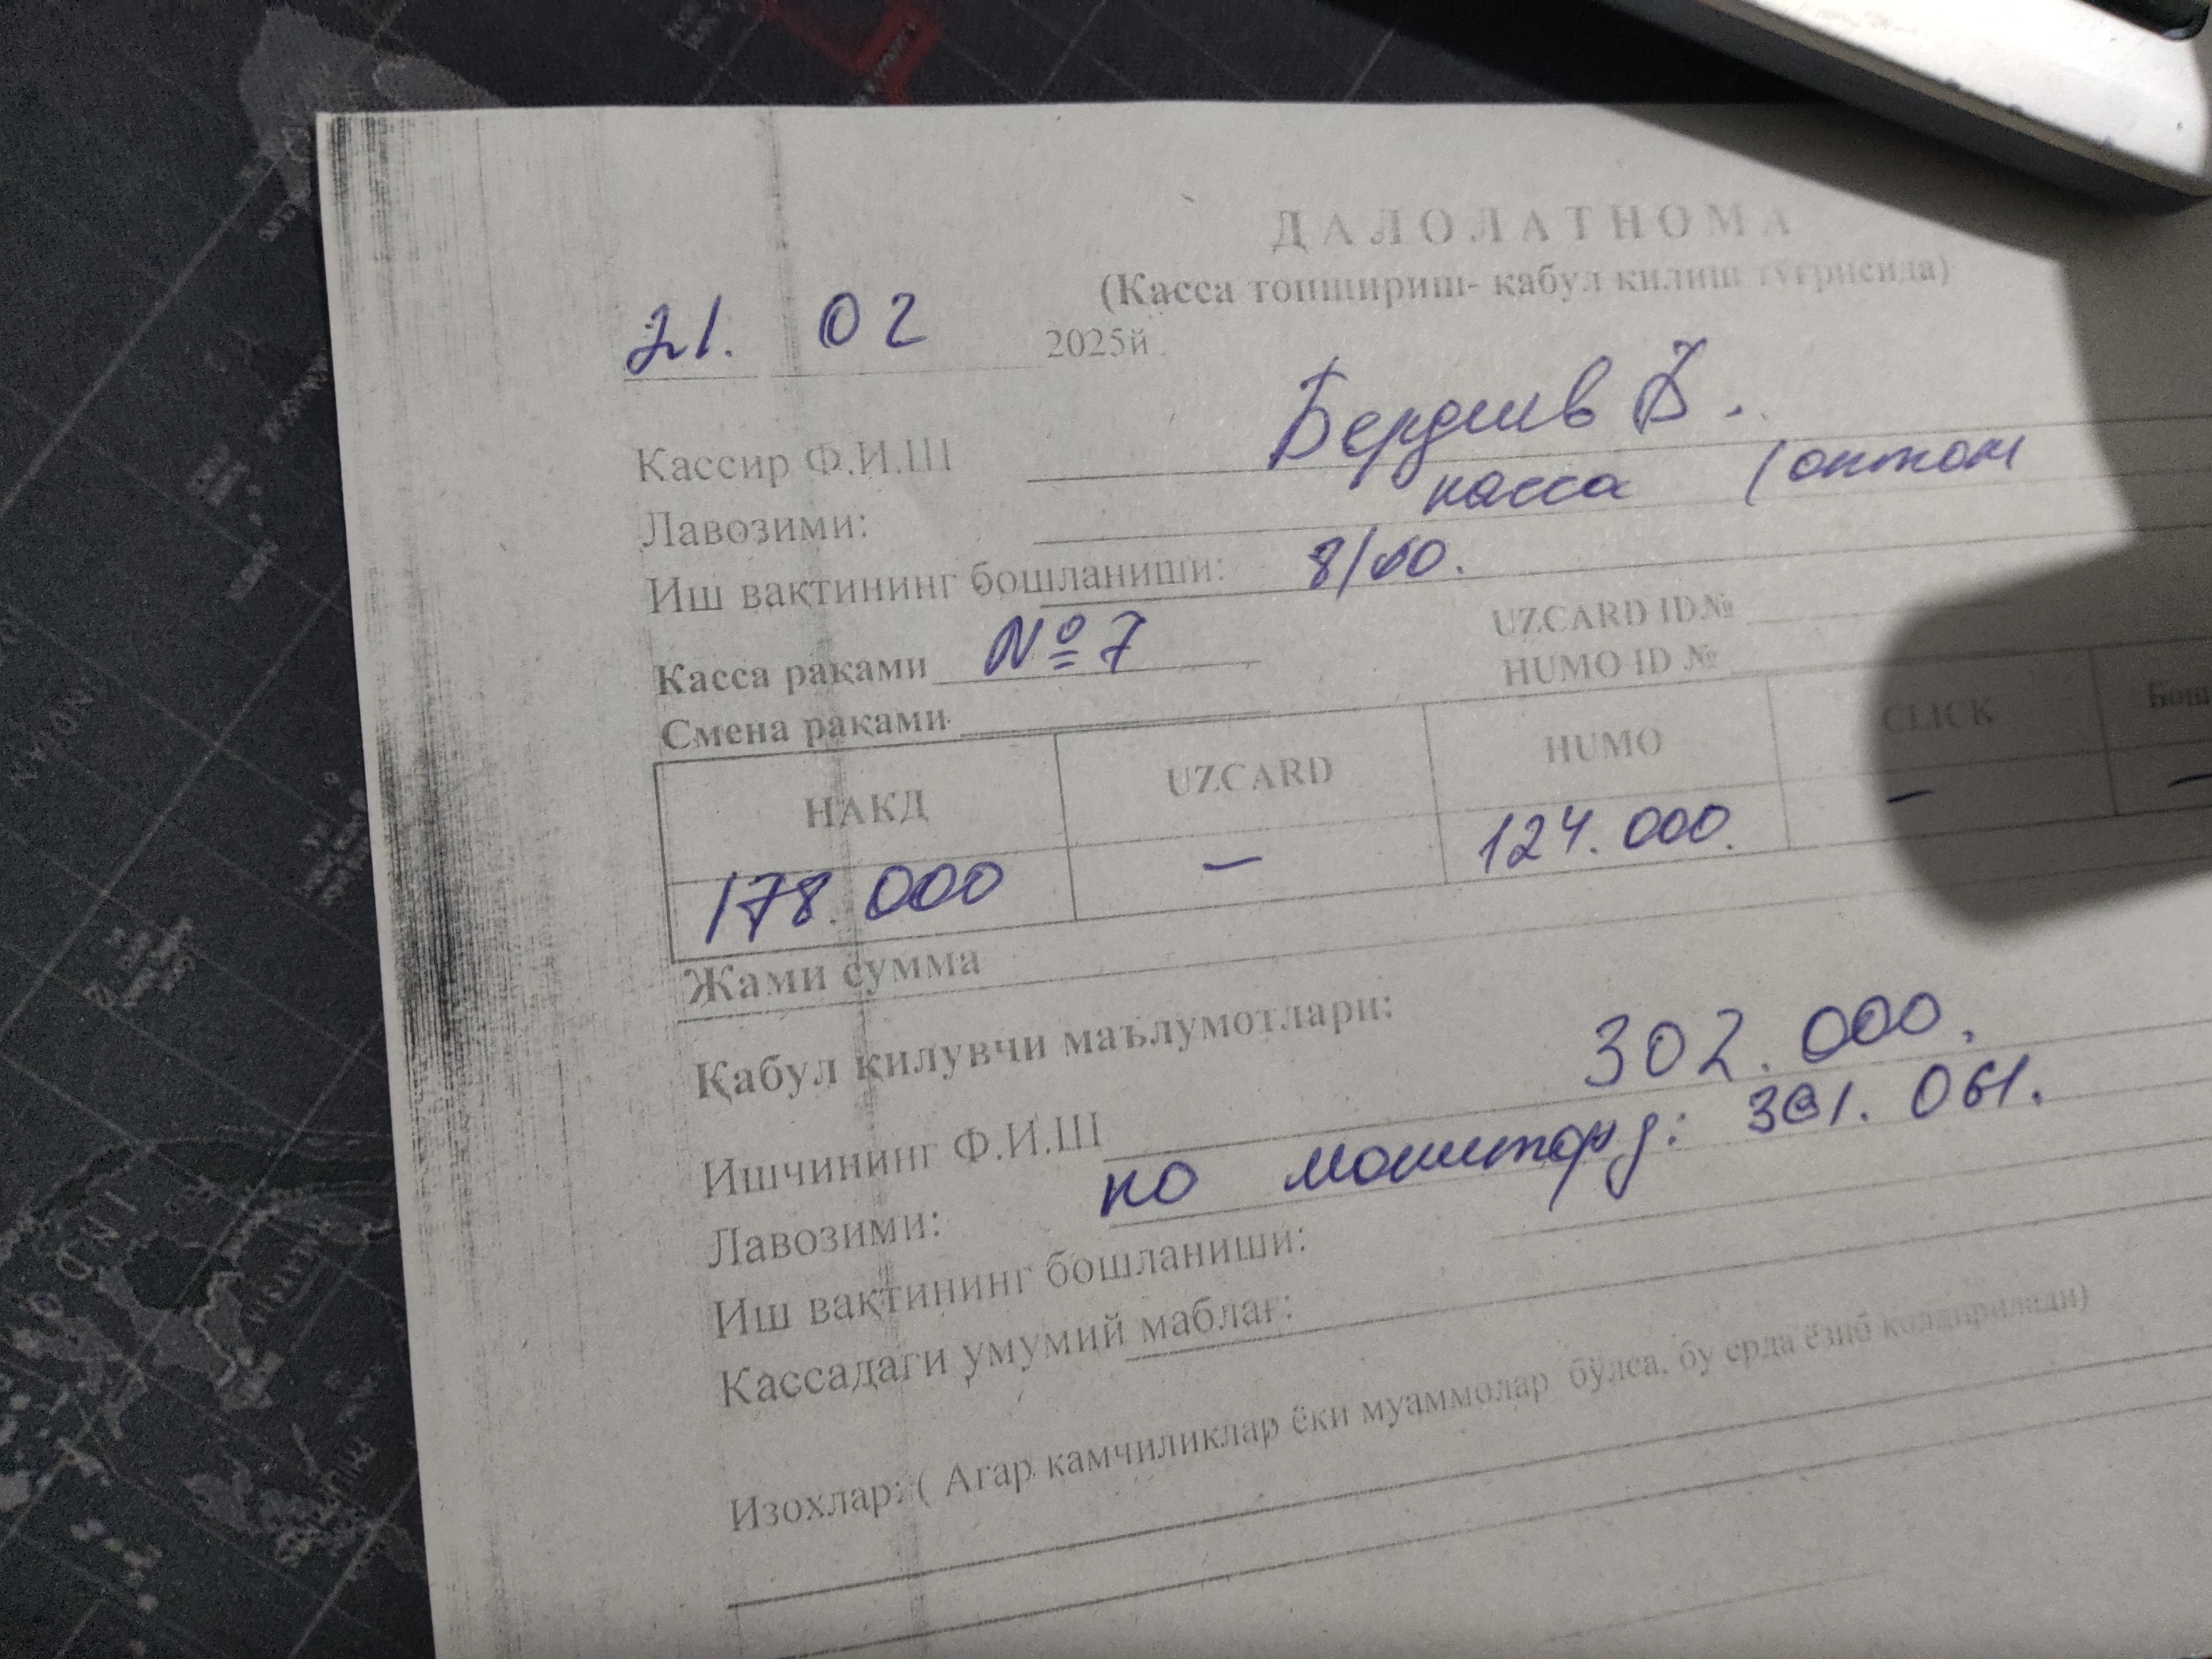 ДАЛОЛАТНОМА
(Касса топшириш- қабул килиш тўғрисида)
21. 02 2025й
Кассир Ф.И.Ш Бердиев Б.
Лавозими: касса (оптом
Иш вақтининг бошланиши: 8/00.
Касса рақами №7 UZCARD ID№
Смена рақами HUMO ID №
НАКД UZCARD HUMO CLICK Бош
178.000 — 124.000. — —
Жами сумма
Қабул килувчи маълумотлари:
302.000.
Ишчининг Ф.И.Ш
Лавозими: по монитору: 301.061.
Иш вақтининг бошланиши:
Кассадаги умумий маблағ:
Изохлар: ( Агар камчиликлар ёки муаммолар бўлса, бу ерда ёзиб колдирилади)